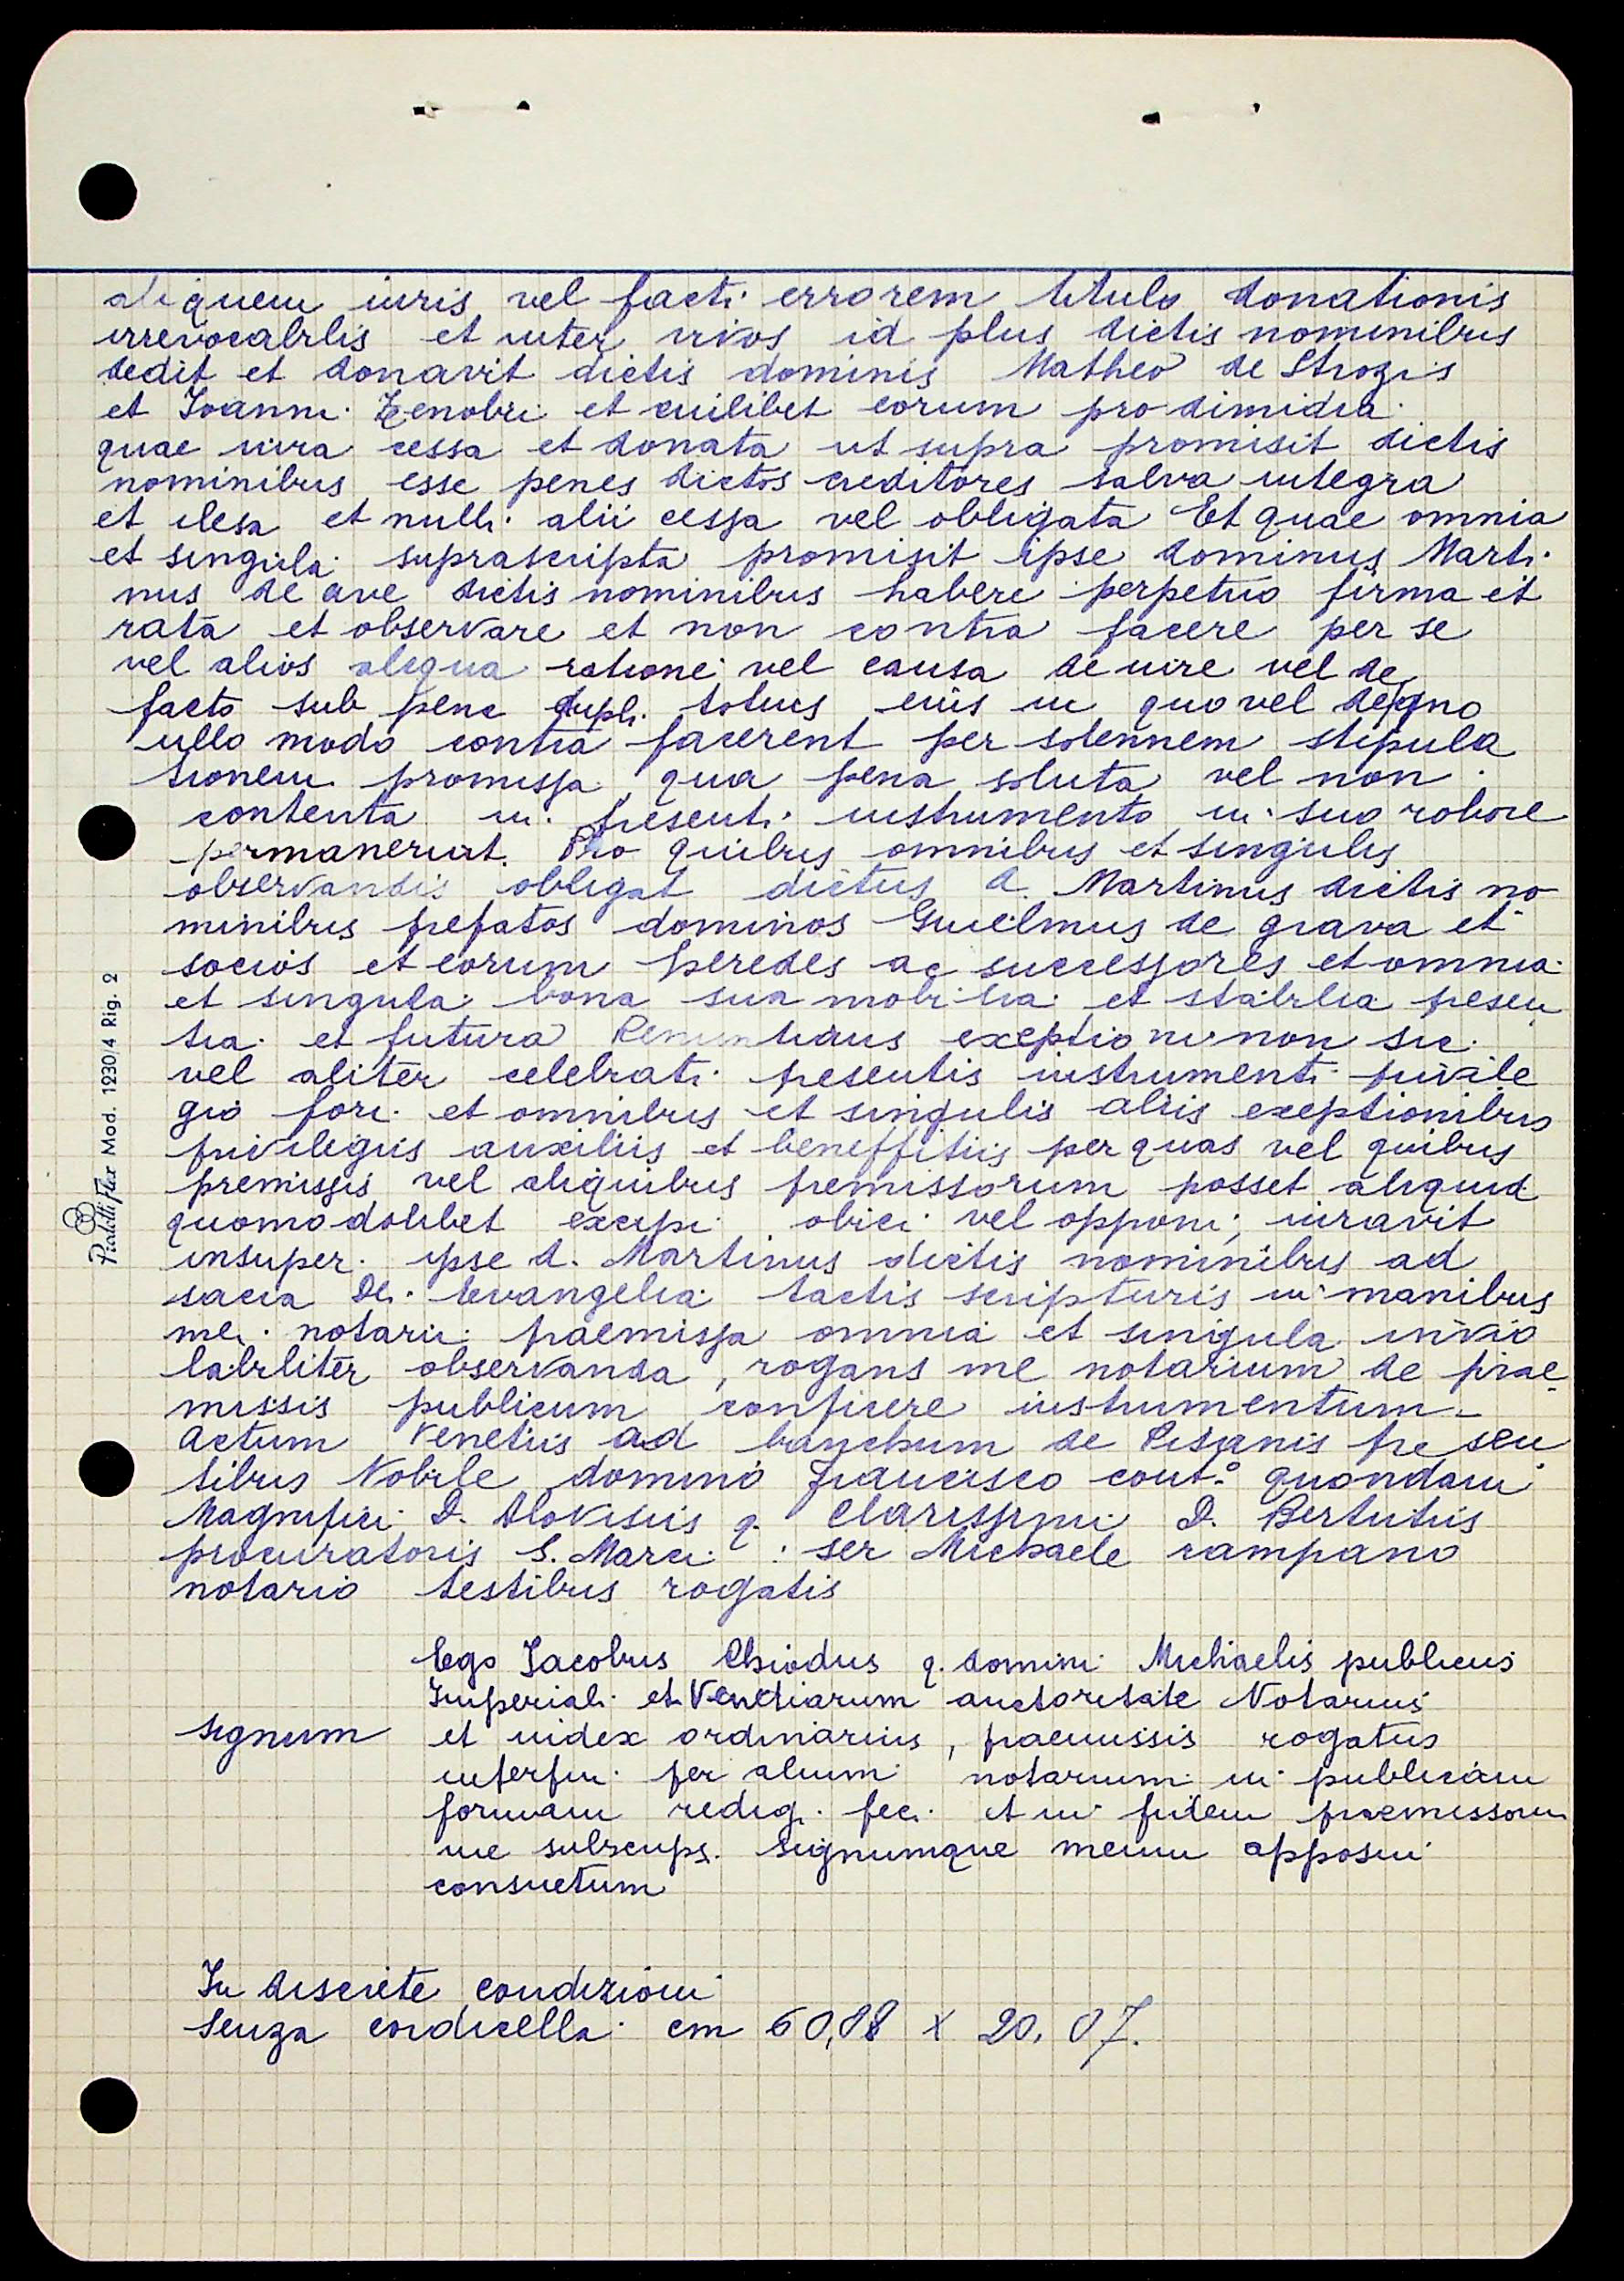 aliquem iuris vel facti errorem titulo donationis
irrevocabilis et inter vivos id plus dictis nominibus
dedit et donavit dictis dominis Matheo de Strozis
et Joanni Zenobii et cuilibet eorum pro dimidia
quae iura cessa et donata ut supra promisit dictis
nominibus esse penes dictos creditores salva integra
et ilesa et nulli alii cessa vel obligata Et quae omnia
et singula suprascripta promisit ipse dominus Marti
nus de ave dictis nominibus habere perpetuo firma et
rata et observare et non contra facere per se
vel alios aliqua ratione vel causa de iure vel de
facto sub pene dupli totius eius in quo vel de quo
ullo modo contra facerent per solennem stipula
tionem promissa qua pena soluta vel non
contenta in presenti instrumento in suo robore
permaneriat. Pro quibus omnibus et singulis
observandis obligat dictus d. Martinus dictis no
minibus prefatos dominos Guielmus de grava et
socios et eorum heredes ac successores et omnia
et singula bona sua mobilia et stabilia presen
tia et futura Renuntians exeptioni non sic
vel aliter celebrati presentis instrumenti privile
gio fori et omnibus et singulis aliis exeptionibus
privilegiis auxiliis et beneffitiis per quas vel quibus
premissis vel aliquibus premissorum posset aliquid
quomodolibet excipi obici vel opponi; iuravit
insuper ipse d. Martinus dictis nominibus ad
sacra Dei Evangelia tactis scripturis in manibus
mei notarii praemissa omnia et singula invio
labiliter observanda, rogans me notarium de prae
missis publicum conficere instrumentum-
Actum Venetiis ad banchum de Pisanis presen
tibus Nobile domino Francisco cont.º quondam
Magnifici D. Alovisiis q. Clarissimi D. Bertutiis
procuratoris S. Marci : ser Michaele rampano
notario testibus rogatis
Ego Jacobus Chiodus q. domini Michaelis publicus
Imperiali et Venetiarum auctoritate Notarius
signum et iudex ordinarius, praemissis rogatus
interfui per alium notarium in publicam
formam redigi feci et in fidem praemissorum
me subscripsi. Signumque meum apposui
consuetum
In discrete condizioni
senza cordicella cm 60,08 x 20,07.
Pigna Mod. 11230/4 Rig. 2